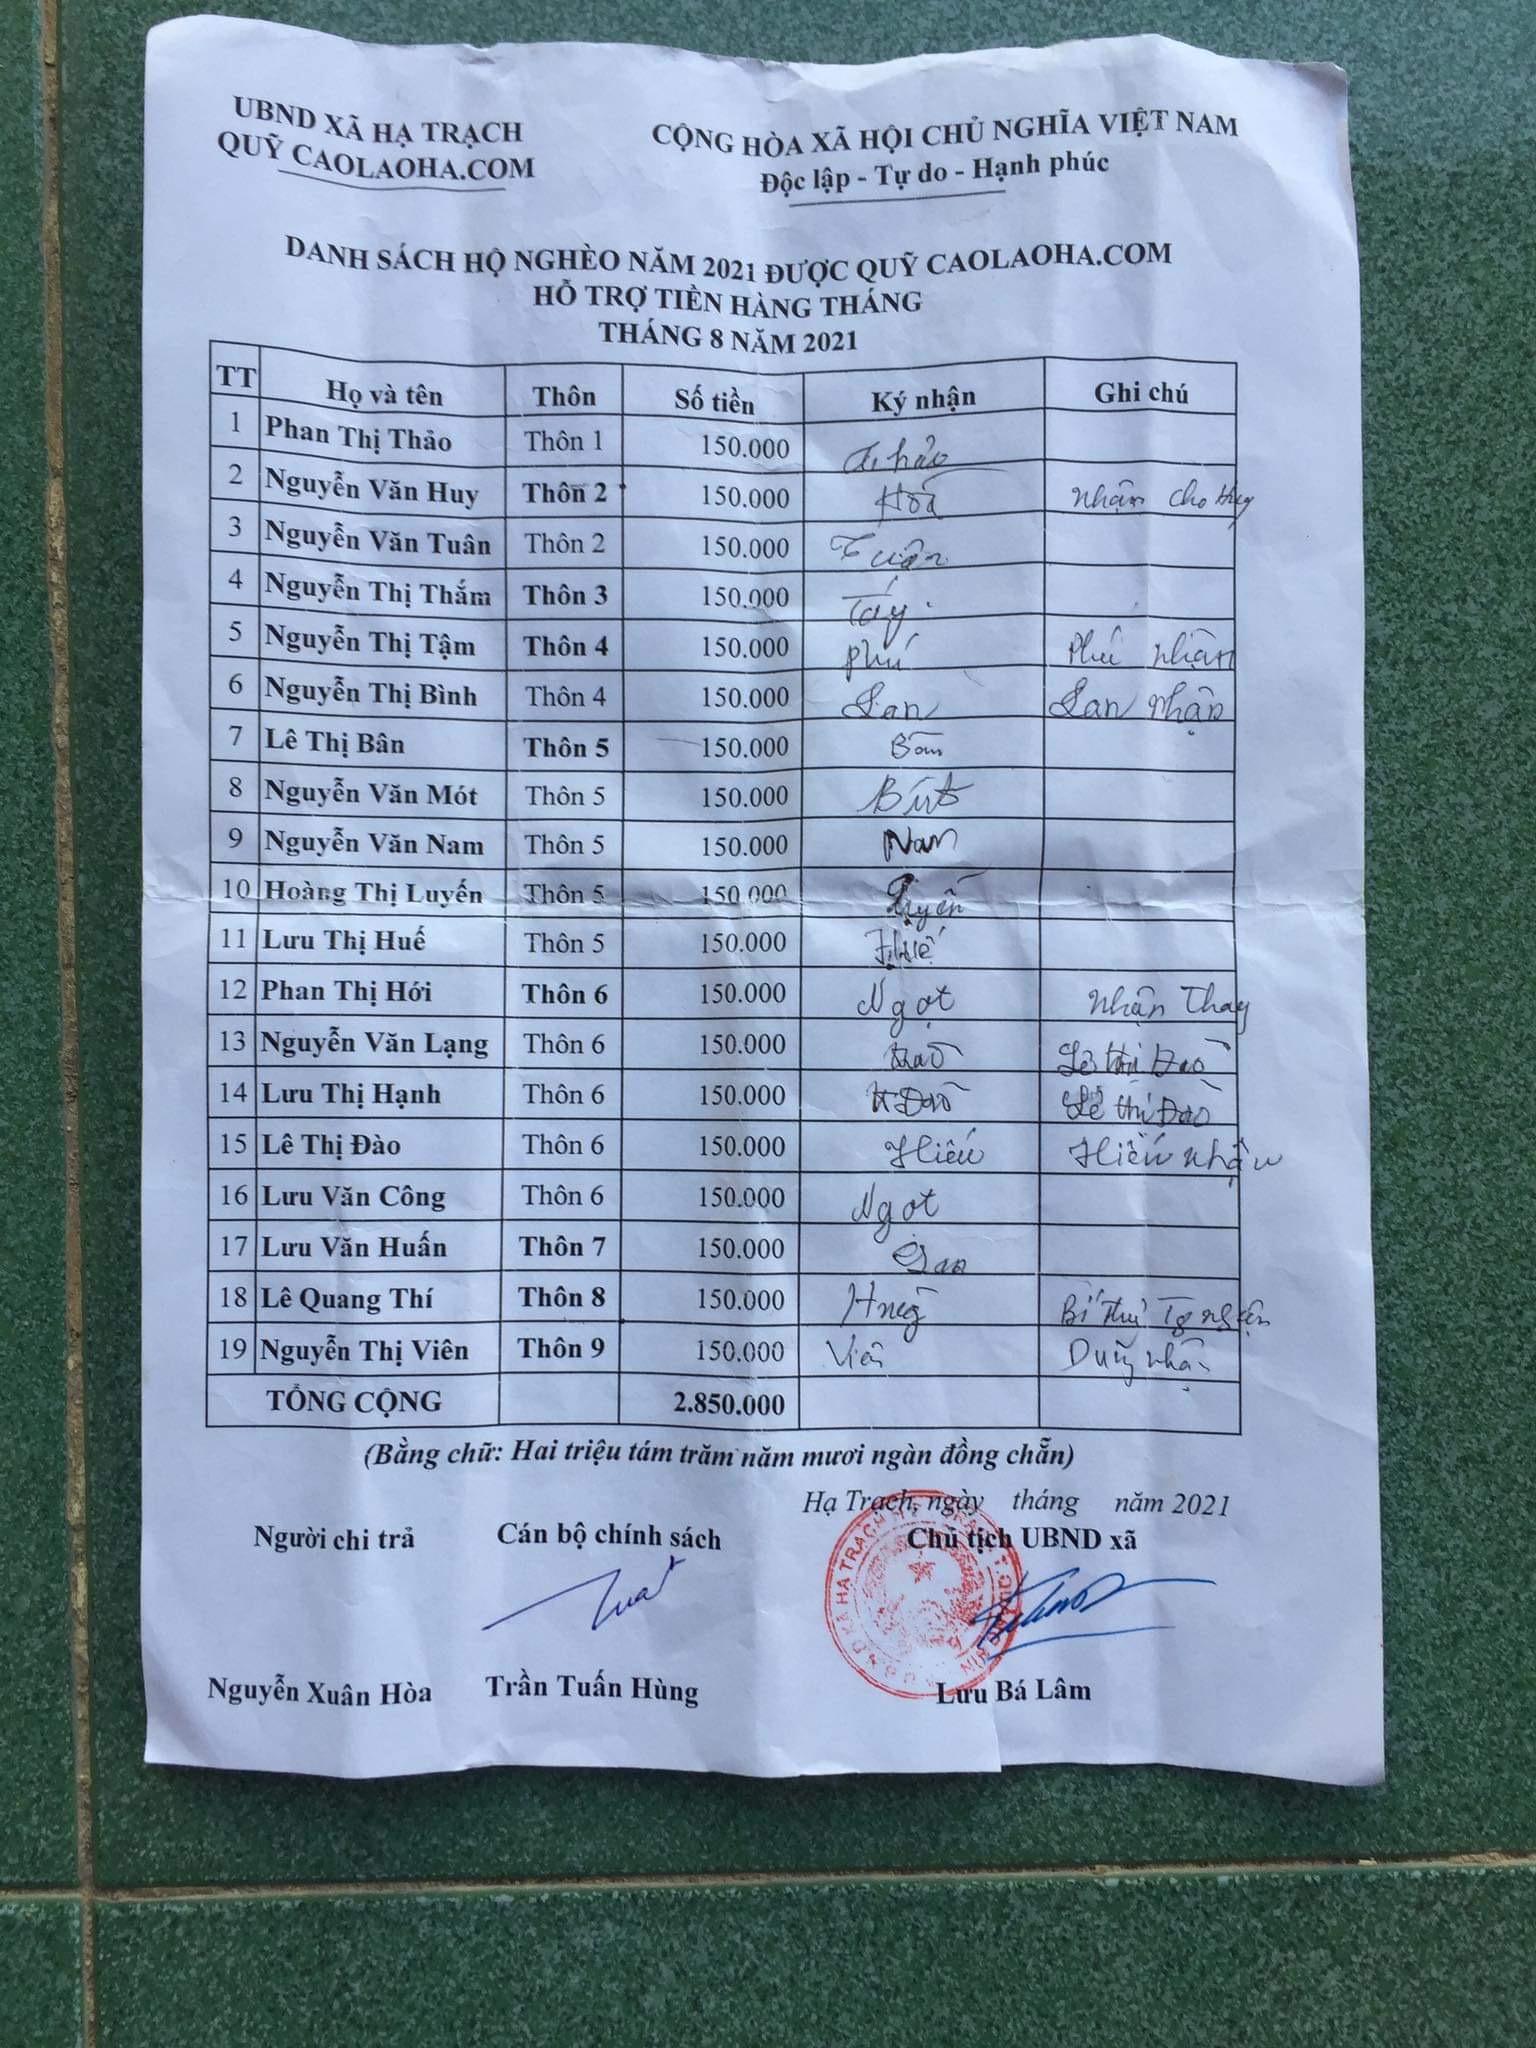 UBND XÃ HẠ TRẠCH
QUỸ CAOLAOHA.COM
CỘNG HÒA XÃ HỘI CHỦ NGHĨA VIỆT NAM
Độc lập - Tự do - Hạnh phúc
DANH SÁCH HỘ NGHÈO NĂM 2021 ĐƯỢC QUỸ CAOLAOHA.COM
HỖ TRỢ TIỀN HÀNG THÁNG
THÁNG 8 NĂM 2021
TT Họ và tên Thôn Số tiền Ký nhận Ghi chú
1 Phan Thị Thảo Thôn 1 150.000 Thảo
2 Nguyễn Văn Huy Thôn 2 150.000 Hoà Nhận cho Huy
3 Nguyễn Văn Tuân Thôn 2 150.000 Tuân
4 Nguyễn Thị Thắm Thôn 3 150.000
5 Nguyễn Thị Tậm Thôn 4 150.000 Phú Phú nhận
6 Nguyễn Thị Bình Thôn 4 150.000 Lan Lan nhận
7 Lê Thị Bân Thôn 5 150.000
8 Nguyễn Văn Mót Thôn 5 150.000
9 Nguyễn Văn Nam Thôn 5 150.000 Nam
10 Hoàng Thị Luyến Thôn 5 150.000 Luyến
11 Lưu Thị Huế Thôn 5 150.000
12 Phan Thị Hới Thôn 6 150.000 Ngọt Nhận Thay
13 Nguyễn Văn Lạng Thôn 6 150.000 Lê thị Đào
14 Lưu Thị Hạnh Thôn 6 150.000 Lê thị Đào
15 Lê Thị Đào Thôn 6 150.000 Hiếu Hiếu nhận
16 Lưu Văn Công Thôn 6 150.000 Ngọt
17 Lưu Văn Huấn Thôn 7 150.000
18 Lê Quang Thí Thôn 8 150.000
19 Nguyễn Thị Viên Thôn 9 150.000 Viên nhận
TỔNG CỘNG 2.850.000
(Bằng chữ: Hai triệu tám trăm năm mươi ngàn đồng chẵn)
Hạ Trạch, ngày tháng năm 2021
Người chi trả Cán bộ chính sách Chủ tịch UBND xã
Nguyễn Xuân Hòa Trần Tuấn Hùng Lưu Bá Lâm